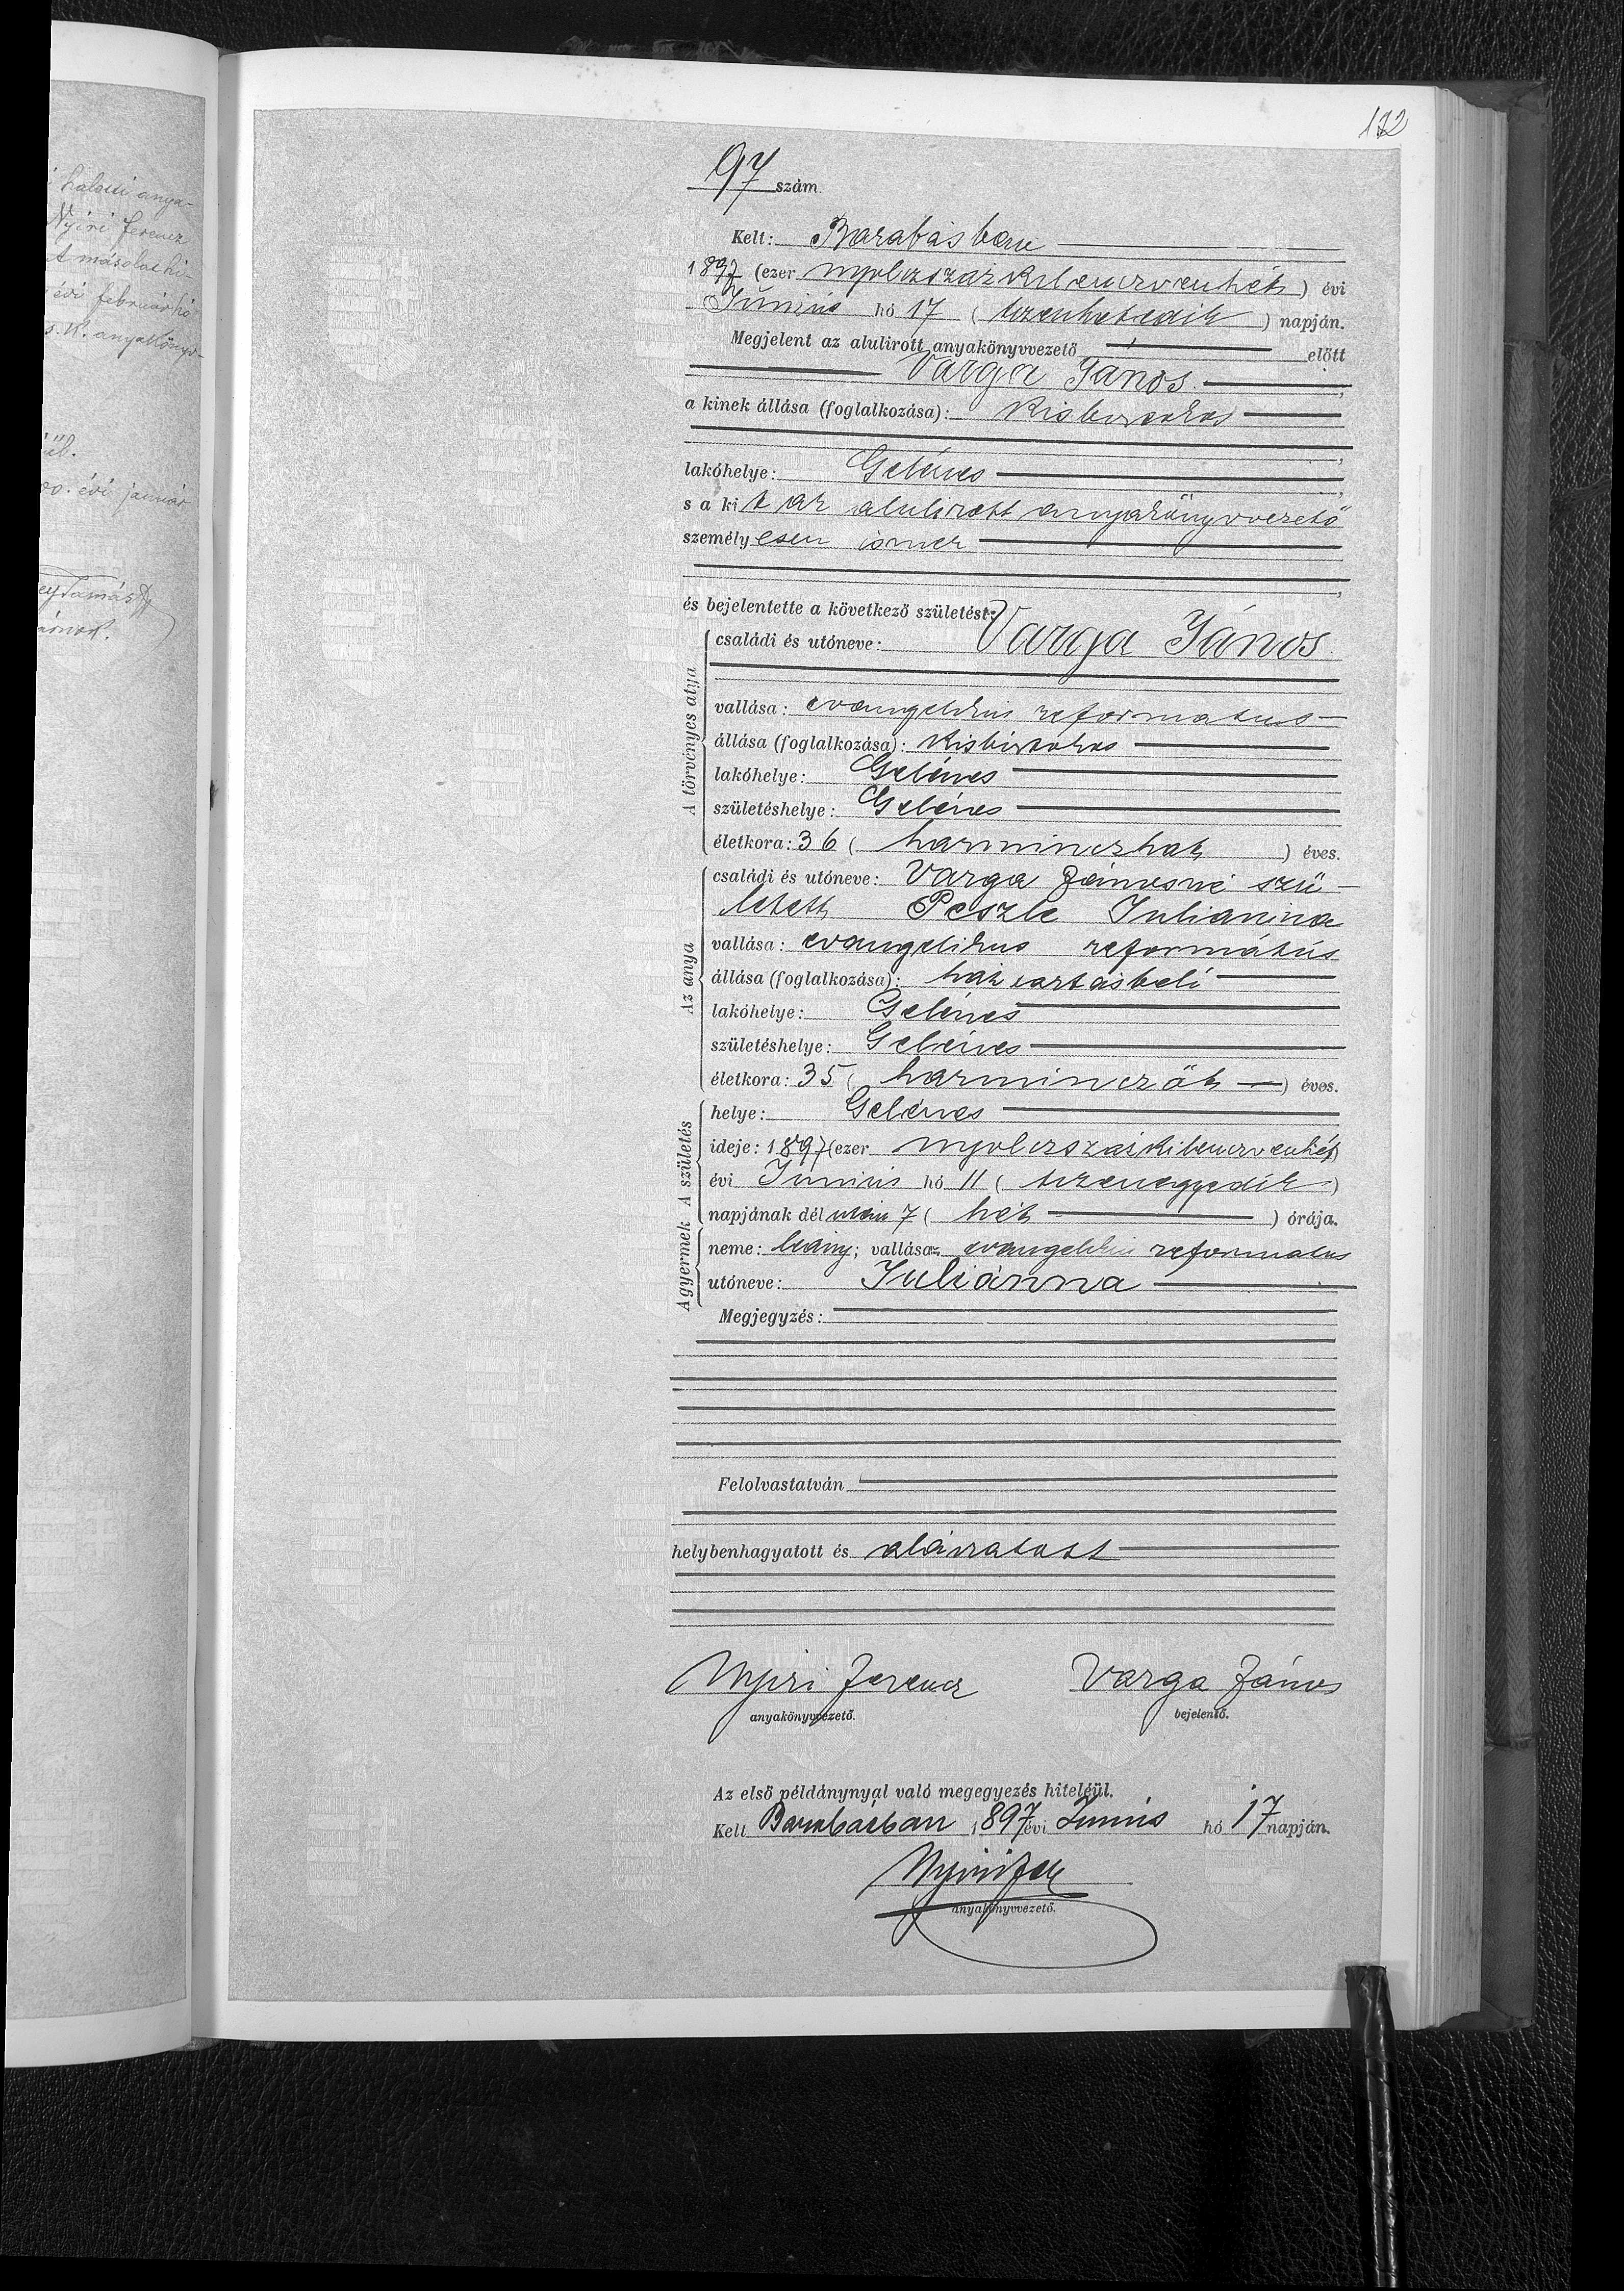 halotti anya-
Nyiri Ferencz
A másolat hi-
évi február hó
s. k. anyakönyv-
ül.
évi január
Tamás
132
97 szám
Kelt: Barabásban
1897 (ezer nyolczszázkilenczvenhét) évi
Június hó 17 (tizenhetedik) napján.
Megjelent az alulirott anyakönyvvezető előtt
Varga János,
a kinek állása (foglalkozása): Kisbirtokos
lakóhelye: Gelénes,
s a kit az alulirott anyakönyvvezető
személyesen ismer
és bejelentette a következő születést:
A törvényes atya
családi és utóneve: Varga János.
vallása: evangelikus reformatus
állása (foglalkozása): Kisbirtokos
lakóhelye: Gelénes
születéshelye: Gelénes
életkora: 36 (harminczhat) éves.
Az anya
családi és utóneve: Varga Jánosné szü-
letett Peszle Julianna
vallása: evangelikus református
állása (foglalkozása): háztartásbeli
lakóhelye: Gelénes
születéshelye: Gelénes
életkora: 35 (harminczöt) éves.
A születés
helye: Gelénes
ideje: 1897 (ezer nyolczszázkilenczvenhét)
évi Junius hó 11 (tizenegyedik)
napjának dél után 7 (hét) órája.
A gyermek
neme: leány; vallása: evangelikus reformatus
utóneve: Juliánna
Megjegyzés:
Felolvastatván
helybenhagyatott és aláiratott
Nyiri Ferencz Varga János
anyakönyvvezető. bejelentő.
Az első példánynyal való megegyezés hiteléül.
Kelt Barabásban 1897 évi Junius hó 17 napján.
Nyiri
anyakönyvvezető.